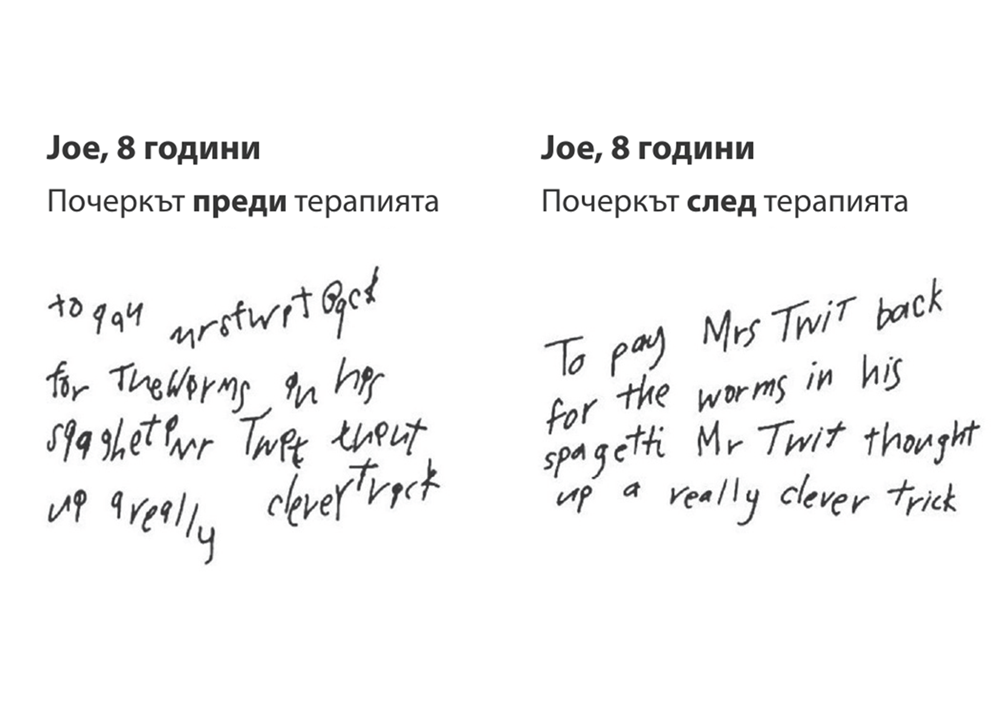 Joe, 8 години
Почеркът преди терапията
to qay mrstwit Bqck
for TheWorms in his
sqaghetinr Twet thout
up areally cleverTrick
Joe, 8 години
Почеркът след терапията
To pay Mrs Twit back
for the worms in his
spagetti Mr Twit thought
up a really clever trick